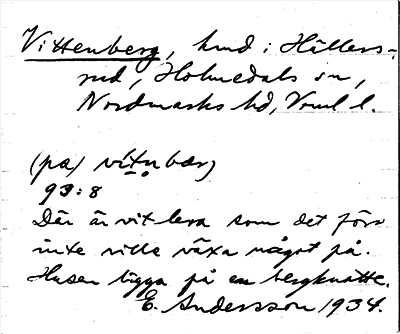 Vittenberg, hmd i Hällers-
rud, Holmedals sn,
Nordmarks hd, Vrml l.
(pa) vitnbær)
93:8
Där är vit lera som det förr
inte ville växa något på.
Husen ligga på en bergknatte.
E. Andersson 1934.